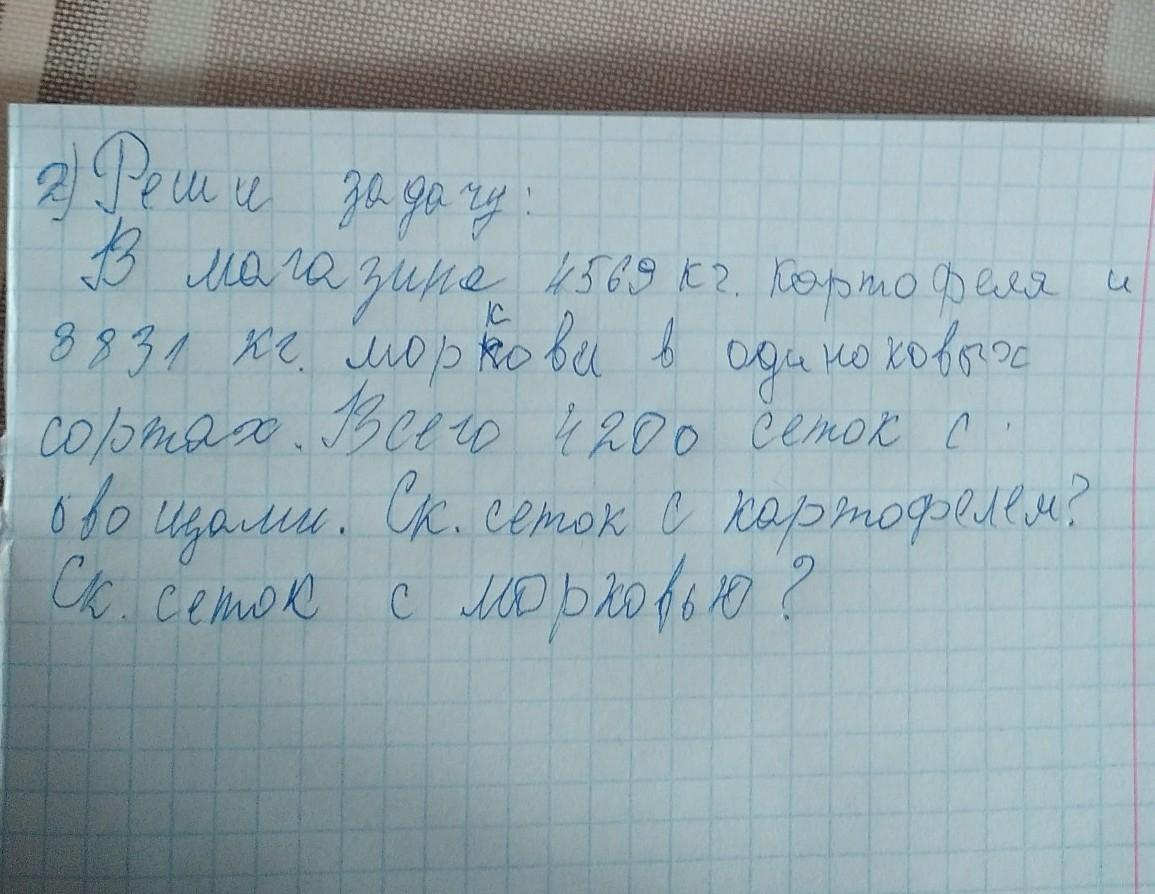 2) Реши задачу:
В магазине 4569 кг. картофеля и
3831 кг. моркови в одиноковых
сортах. Всего 4200 сеток с
овощами. Ск. сеток с картофелем?
Ск. сеток с морковью?